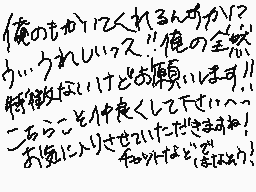 俺のもかいてくれるんすか!?
うぃ、うれしいっス!!俺の全然
特徴ないけどお願いします!!
こちらこそ仲良くして下さいへへっ
お気に入りさせていただきますね!
チャットなどではなそう!